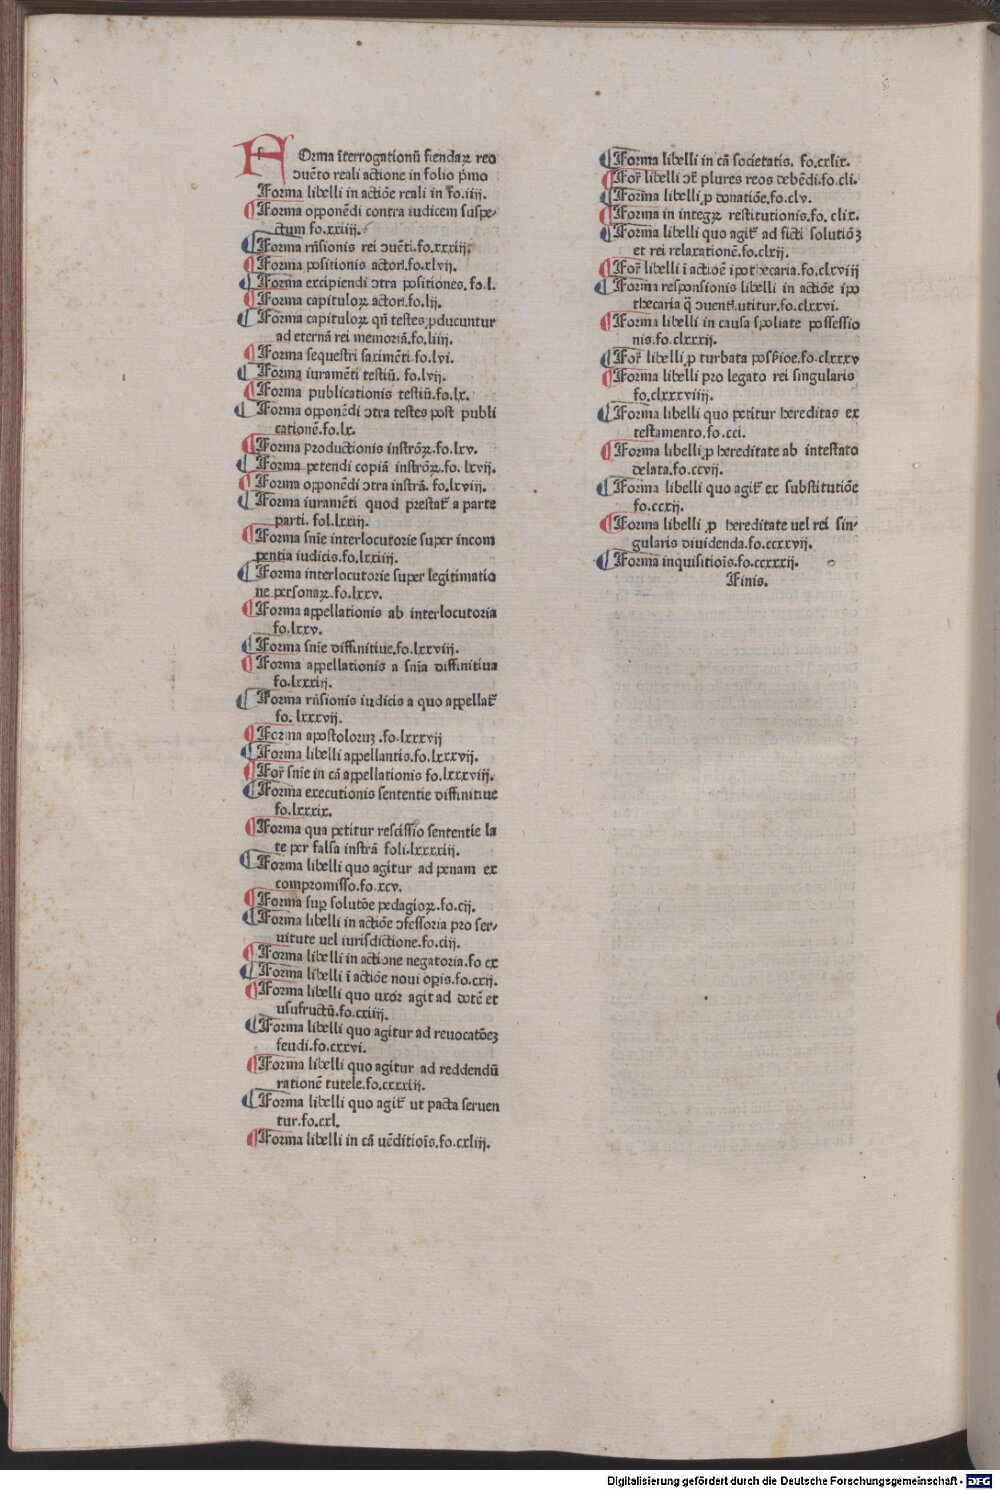 FOrma ĩterrogationũ fiendaꝝ reo
ↄuẽto reali actione in folio p̃mo
Forma libelli in actiõe reali in fo.iiij.
¶Forma opponẽdi contra iudicem suspe⸗
ctum fo.xxiiij.
¶Forma rñsionis rei ↄuẽti.fo.xxxiij.
¶Forma positionis actoꝝ.fo.xlvij.
¶Forma excipiendi ↄtra positiones.fo.l.
¶Forma capituloꝝ actoꝝ.fo.lij.
¶Forma capituloꝝ qñ testes ꝓducuntur
ad eternã rei memoriã.fo.liiij.
¶Forma sequestri saximẽti.fo.lvi.
¶Forma iuramẽti testiũ. fo.lvij.
¶Forma publicationis testiũ.fo.lx.
¶Forma opponẽdi ↄtra testes post publi
cationẽ.fo.lx.
¶Forma productionis instrõꝝ.fo.lxv.
¶Forma petendi copiã instrõꝝ.fo. lxvij.
¶Forma opponẽdi ↄtra instrã. fo.lxviij.
¶Forma iuramẽti quod prestat᷑ a parte
parti. fol.lxxiij.
¶Forma sñie interlocutorie super incom
pentia iudicis.fo.lxxiiij.
¶Forma interlocutorie super legitimatio
ne personaꝝ.fo.lxxv.
¶Forma appellationis ab interlocutoria
fo.lxxv.
¶Forma sñie diffinitiue.fo.lxxviij.
¶Forma appellationis a sñia diffinitiua
fo.lxxxij.
¶Forma rñsionis iudicis a quo appellat᷑
fo. lxxxvij.
¶Forma apostoloruꝫ .fo.lxxxvij
¶Forma libelli appellantis.fo.lxxxvij.
¶For̃ sñie in cã appellationis fo.lxxxviij.
¶Forma executionis sententie diffinitiue
fo.lxxxix.
¶Forma qua petitur rescissio sententie la
te per falsa instrã foli.lxxxxiij.
¶Forma libelli quo agitur ad penam ex
compromisso.fo.xcv.
¶Forma sup̱ solutõe pedagioꝝ.fo.cij.
¶Forma libelli in actiõe ↄfessoria pro ser⸗
uitute uel iurisdictione.fo.ciij.
¶Forma libelli in actione negatoria.fo cx
¶Forma libelli ĩ actiõe noui op̱is.fo.cxij.
¶Forma libelli quo uxor agit ad dotẽ et
usufructũ.fo.cxiij.
¶Forma libelli quo agitur ad reuocatõeꝫ
feudi.fo.cxxvi.
¶Forma libelli quo agitur ad reddendũ
rationẽ tutele.fo.cxxxiij.
¶Forma libelli quo agit᷑ ut pacta seruen
tur.fo.cxl.
¶Forma libelli in cã uẽditiois̃.fo.cxliij.
¶Forma libelli in cã societatis. fo.cxlix.
¶For̃ libelli ↄt᷑ plures reos debẽdi.fo.cli.
¶Forma libelli ꝓ donatiõe.fo.clv.
¶Forma in integꝝ restitutionis.fo. clix.
¶Forma libelli quo agit᷑ ad ficti solutiõꝫ
et rei relaxationẽ.fo.clxij.
¶For̃ libelli ĩ actioẽ ipothecaria.fo.clxviij
¶Forma responsionis libelli in actiõe ipo
thecaria q̃ ↄuentꝰ.utitur.fo.clxxvi.
¶Forma libelli in causa spoliate possessio
nis.fo.clxxxij.
¶For̃ libelli ꝓ turbata pos̃sioe.fo.clxxxv
¶Forma libelli pro legato rei singularis
fo.clxxxviiij.
¶Forma libelli quo petitur hereditas ex
testamento.fo.cci.
¶Forma libelli ꝓ hereditate ab intestato
delata.fo.ccvij.
¶Forma libelli quo agit᷑ ex substitutiõe
fo.ccxij.
¶Forma libelli ꝓ hereditate uel rei sin⸗
gularis diuidenda.fo.ccxxvij.
¶Forma inquisitiois̃.fo.ccxxxij.
Finis.
Digitalisierung gefördert durch die Deutsche Forschungsgemeinschaft - DFG